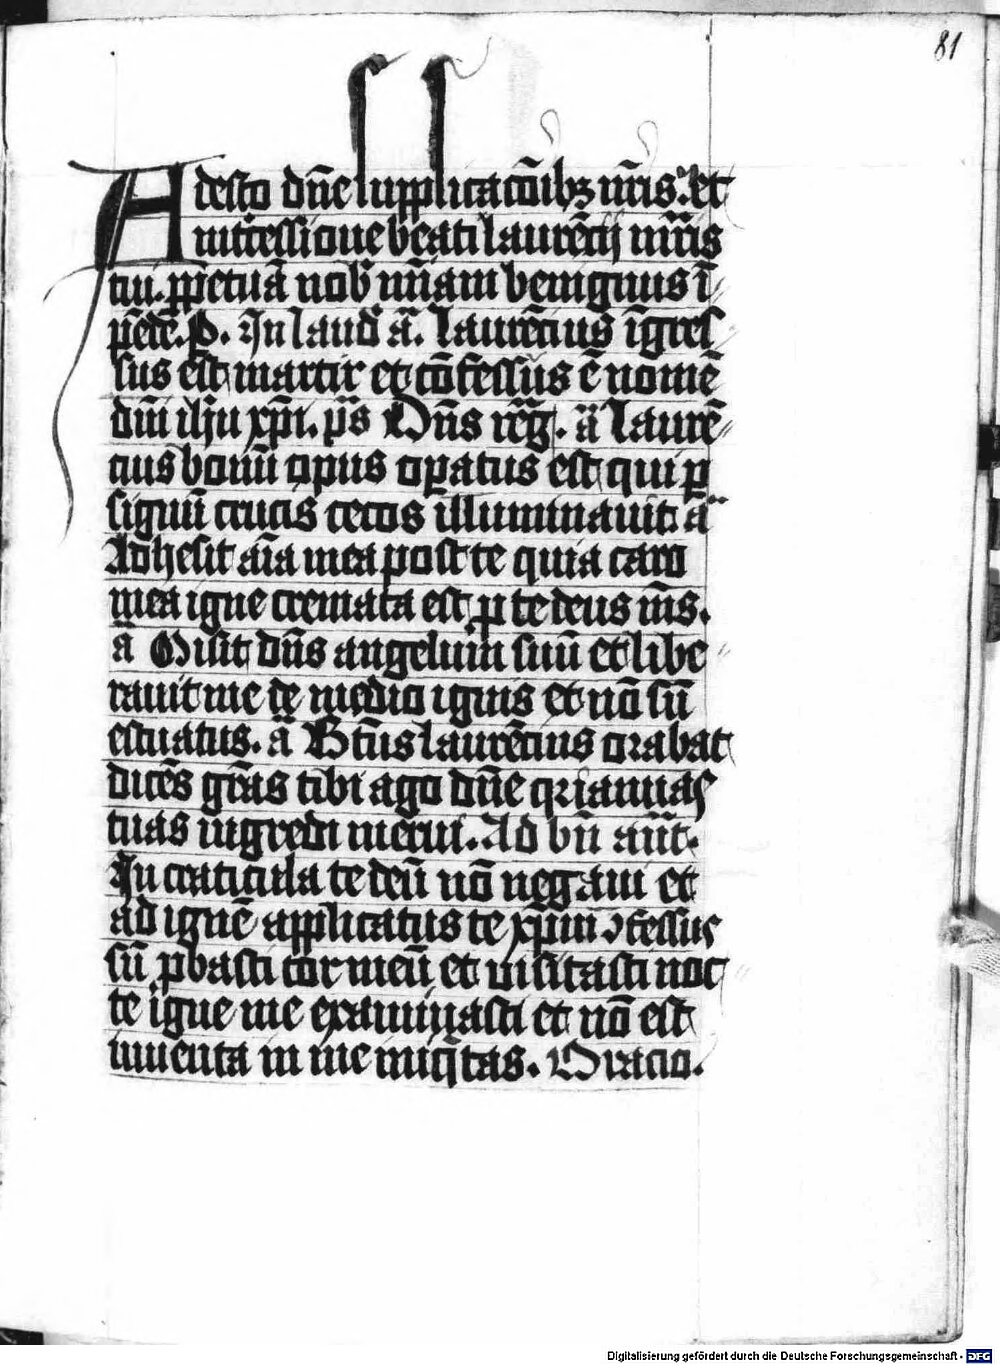 81
Adesto dn̄e supplicac̄oibꝫ nr̄is. et
int̄cessione beati laurēcij mr̄ris
tui. ꝑpetuā nob̄ mīam benignus ī
pēde. P. In laud ā. Laurēcius īgres
sus est martir et cōfessus ē nomē
dn̄i ih̄u xp̄i. p̄s Dn̄s reḡ. ā Laurē
cius bonū opus oꝑatus est qui ꝑ
signū crucis cecos illuminauit. ā
Adhesit aīa mea post te quia caro
mea igne cremata est ꝑ te deus m̄s.
ā Misit dn̄s angelum suū et libe
rauit me de medio ignis et nō sū
estuatus. ā Bt̄us laurēcius orabat
dicēs grās tibi ago dn̄e qꝛ ianuas
tuas ingredi merui. Ad bn̄ an̄t.
In craticula te deū nō negaui et
ad ignē applicatus te xp̄m ꝯfessus
sū ꝓbasti cor meū et uisitasti noc
te igne me examinasti et nō est
inuenta in me iniq̄tas. Oracio.
Digitalisierung gefördert durch die Deutsche Forschungsgemeinschaft - DFG